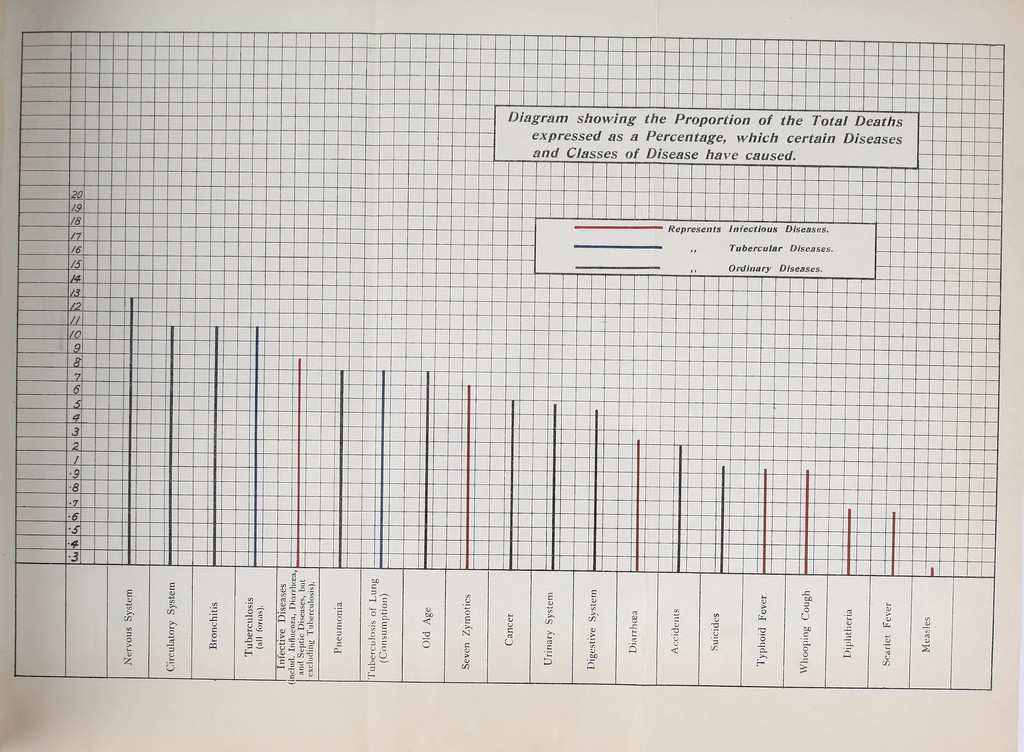 Diagram showing the Proportion of the Total Deaths
expressed as a Percentage, which certain Diseases
and Classes of Disease have caused.
Represents Infectious Diseases.
,, Tubercular Diseases.
,, Ordinary Diseases.
20
19
18
17
16
15
14
13
12
11
10
9
8
7
6
5
4
3
2
1
·9
·8
·7
·6
·5
·4
·3
Nervous System
Circulatory System
Bronchitis
Tuberculosis
(all forms).
Infective Diseases
(includ. Influenza, Diarrhœa,
and Septic Diseases, but
excluding Tuberculosis).
Pneumonia
Tuberculosis of Lung
(Consumption)
Old Age
Seven Zymotics
Cancer
Urinary System
Digestive System
Diarrhœa
Accidents
Suicides
Typhoid Fever
Whooping Cough
Diphtheria
Scarlet Fever
Measles